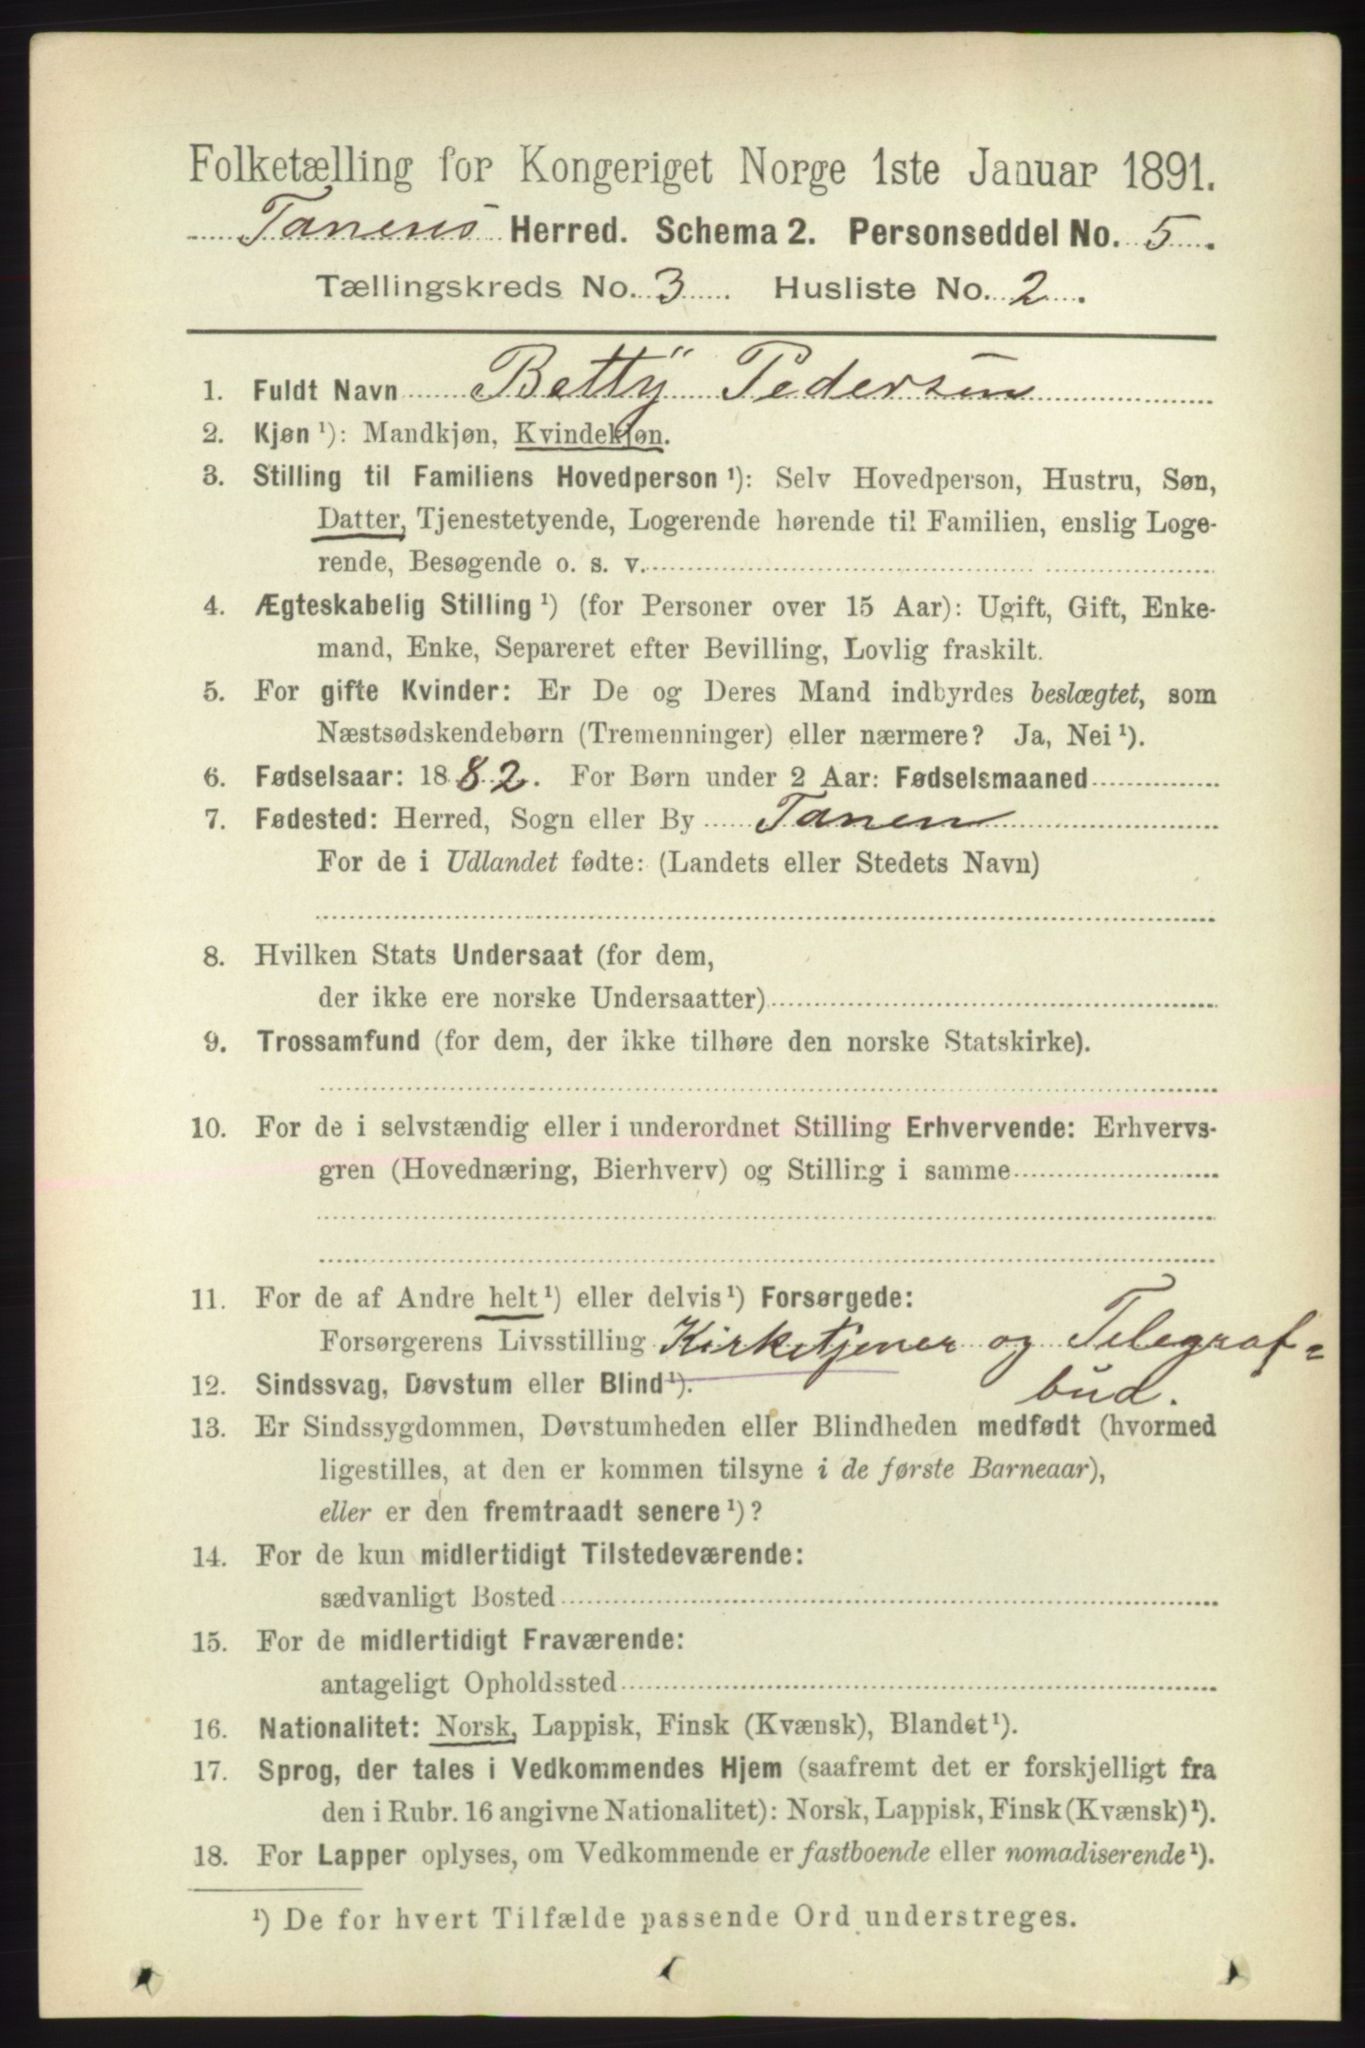 Folketælling for Kongeriget Norge 1ste Januar 1891.
Tanens Herred. Schema 2. Personseddel No. 5.
Tællingskreds No. 3. Husliste No. 2.
1. Fuldt Navn Betty Pedersen
2. Kjøn ¹): Mandkjøn, Kvindekjøn.
3. Stilling til Familiens Hovedperson ¹): Selv Hovedperson, Hustru, Søn,
Datter, Tjenestetyende, Logerende hørende til Familien, enslig Loge-
rende, Besøgende o. s. v.
4. Ægteskabelig Stilling ¹) (for Personer over 15 Aar): Ugift, Gift, Enke-
mand, Enke, Separeret efter Bevilling, Lovlig fraskilt.
5. For gifte Kvinder: Er De og Deres Mand indbyrdes beslægtet, som
Næstsødskendebørn (Tremenninger) eller nærmere? Ja, Nei ¹).
6. Fødselsaar: 1882. For Børn under 2 Aar: Fødselsmaaned
7. Fødested: Herred, Sogn eller By Tanen
For de i Udlandet fødte: (Landets eller Stedets Navn)
8. Hvilken Stats Undersaat (for dem,
der ikke ere norske Undersaatter)
9. Trossamfund (for dem, der ikke tilhøre den norske Statskirke).
10. For de i selvstændig eller i underordnet Stilling Erhvervende: Erhvervs-
gren (Hovednæring, Bierhverv) og Stilling i samme
11. For de af Andre helt ¹) eller delvis ¹) Forsørgede:
Forsørgerens Livsstilling Kirketjener og Telegraf=
bud.
12. Sindssvag, Døvstum eller Blind ¹).
13. Er Sindssygdommen, Døvstumheden eller Blindheden medfødt (hvormed
ligestilles, at den er kommen tilsyne i de første Barneaar),
eller er den fremtraadt senere ¹)?
14. For de kun midlertidigt Tilstedeværende:
sædvanligt Bosted
15. For de midlertidigt Fraværende:
antageligt Opholdssted
16. Nationalitet: Norsk, Lappisk, Finsk (Kvænsk), Blandet ¹).
17. Sprog, der tales i Vedkommendes Hjem (saafremt det er forskjelligt fra
den i Rubr. 16 angivne Nationalitet): Norsk, Lappisk, Finsk (Kvænsk) ¹).
18. For Lapper oplyses, om Vedkommende er fastboende eller nomadiserende ¹).
¹) De for hvert Tilfælde passende Ord understreges.